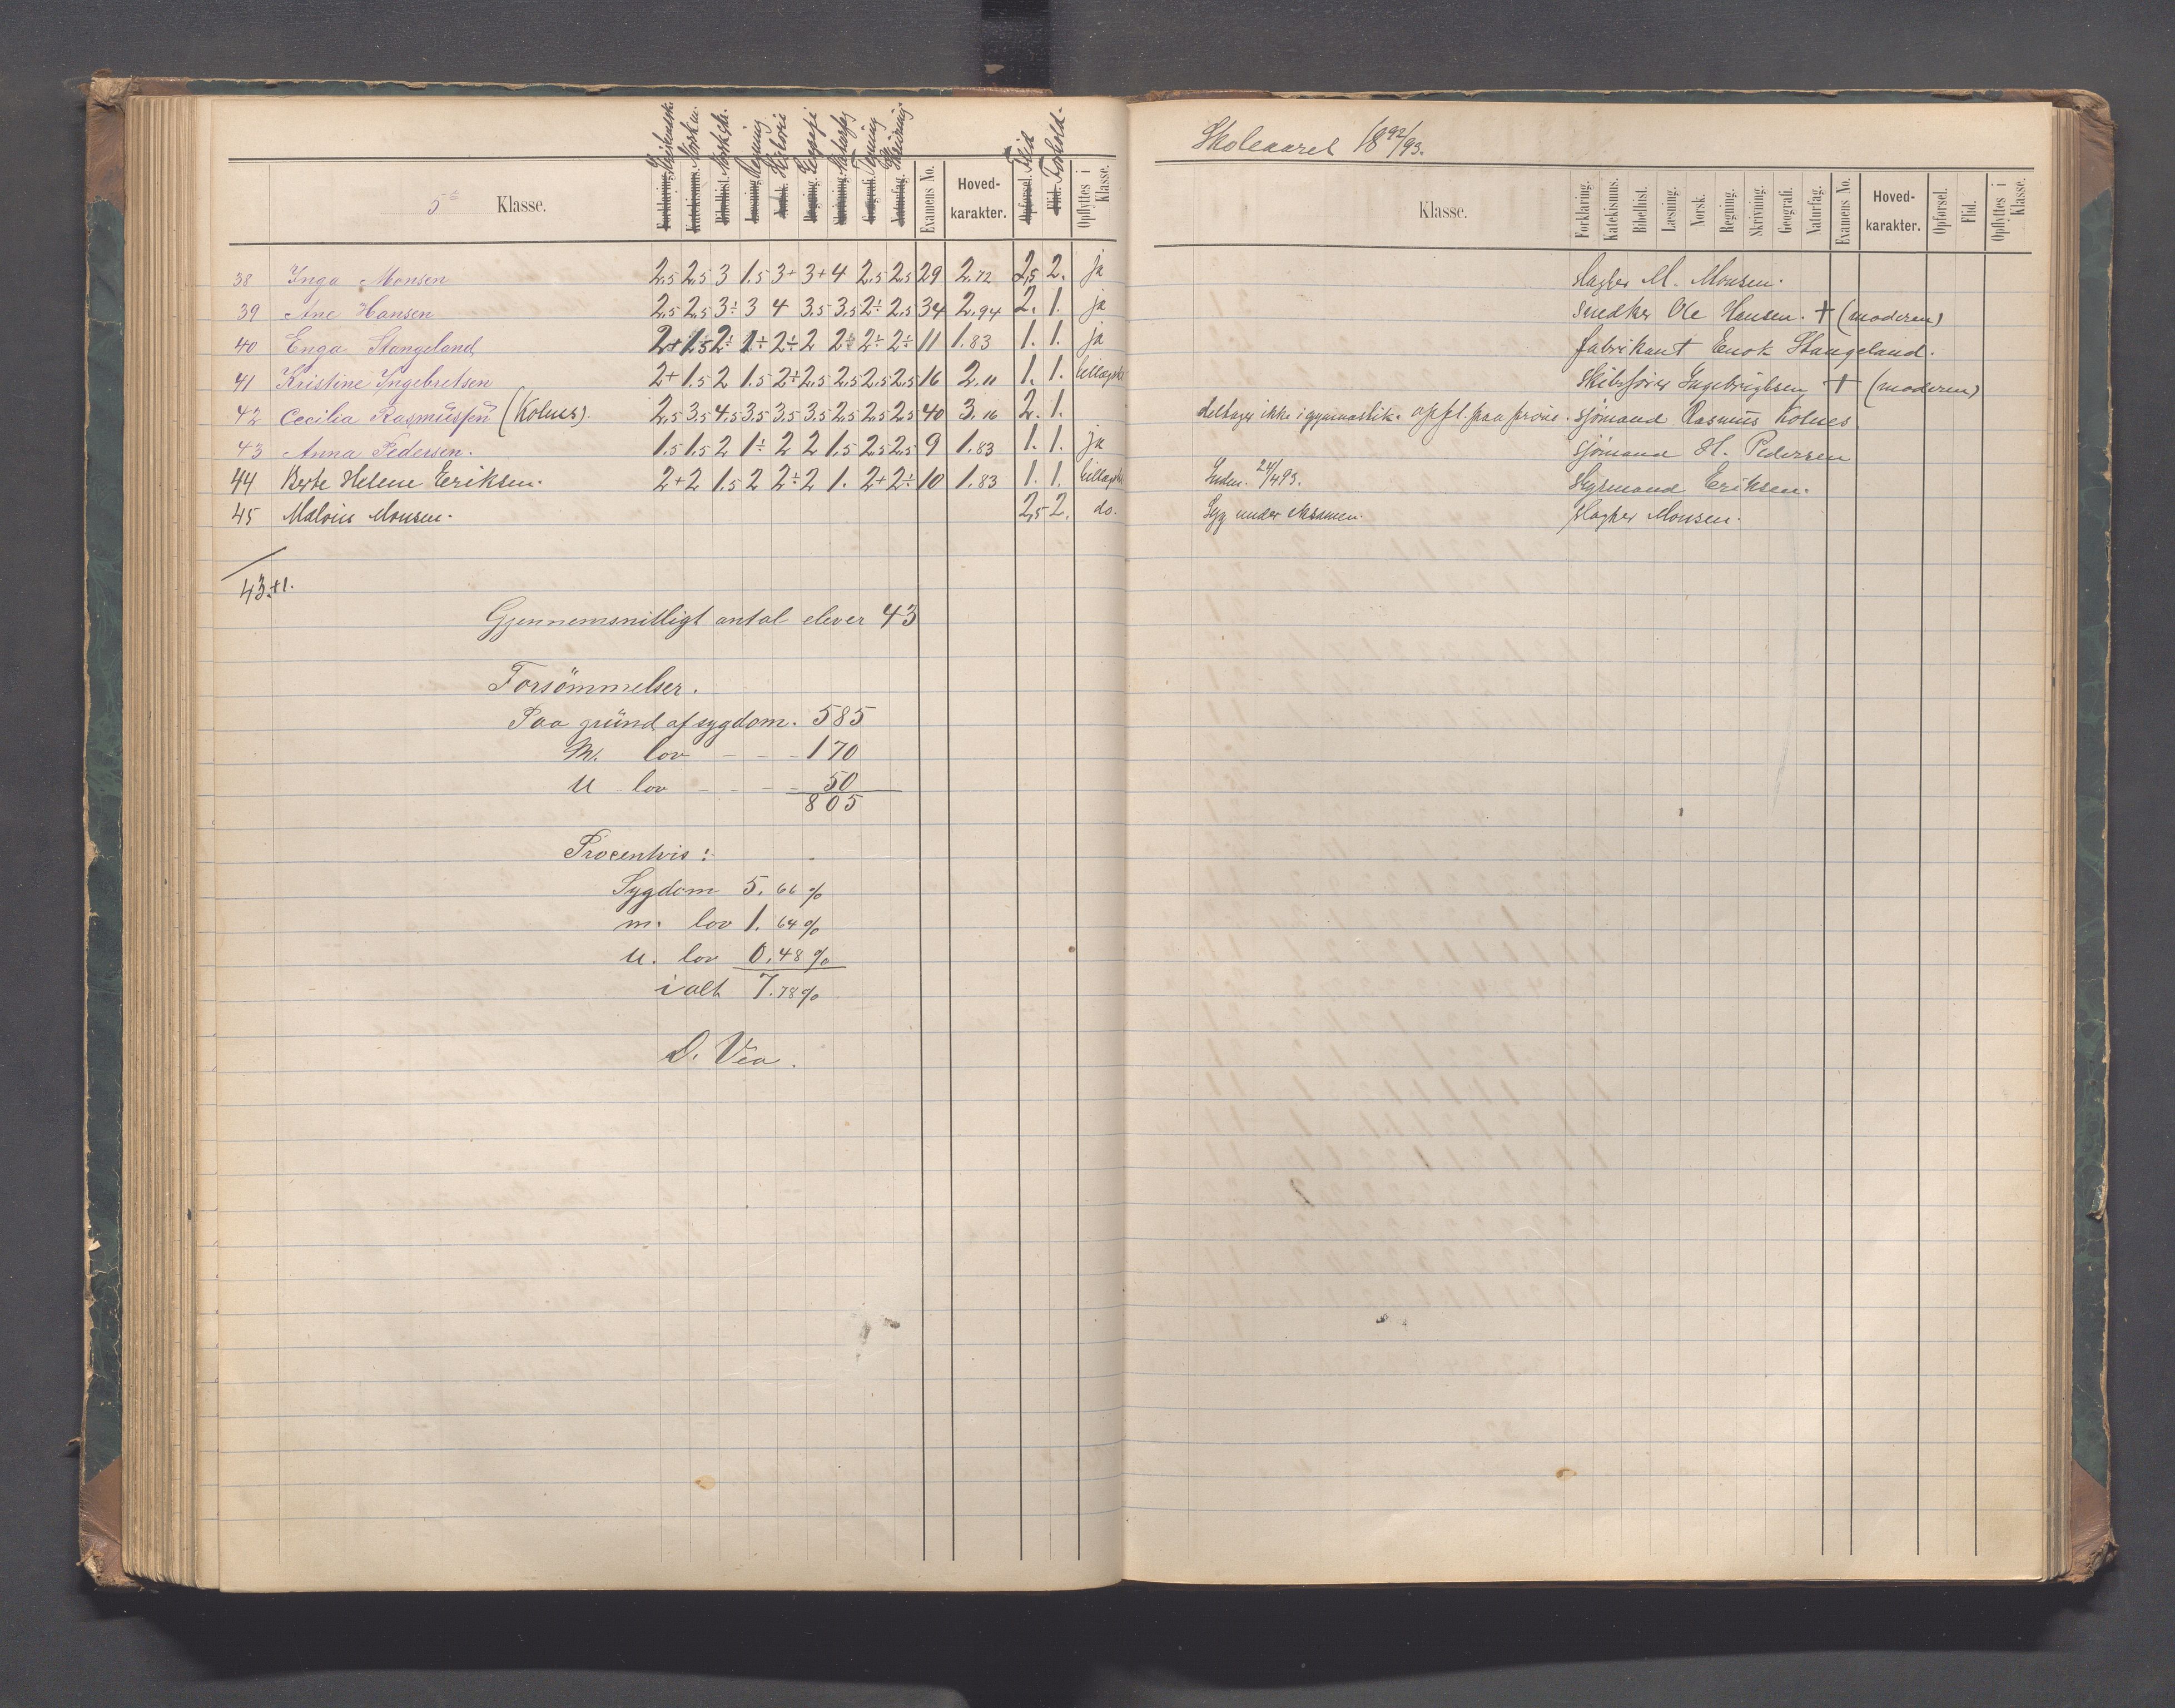 5te Klasse.
Forklaring. Katekismus. Bibelhist. Læsning. Norsk. Regning. Skrivning. Geografi. Naturfag. Examens No. Hoved-karakter. Opførsel. Flid. Opflyttes i Klasse.
Norsk m. Norsk sk. Regning Historie Geografi Naturfag Tegning Skrivning. Flid Forhold.
38 Inga Monsen 2,5 2,5 3 1.5 3+ 3+ 4 2,5 2,5 29 2.72 2,5 2. ja
39 Ane Hansen 2,5 2,5 3÷ 3 4 3,5 3,5 2÷ 2,5 34 2.94 2. 1. ja
40 Enga Stangeland 2+ 1,5 2÷ 1÷ 2÷ 2 2÷ 2÷ 2÷ 11 1.83 1. 1. ja
41 Kristine Ingebretsen 2+ 1.5 2 1.5 2÷ 2,5 2,5 2,5 2,5 16 2.11 1. 1.
42 Cecilia Rasmussen (Kolnes). 2,5 3,5 4,5 3,5 3,5 3,5 2,5 2,5 2,5 40 3.16 2. 1.
43 Anna Pedersen. 1.5 1.5 2 1÷ 2 2 1.5 2,5 2,5 9 1.83 1. 1. ja
44 Berte Helene Eriksen. 2+ 2 1.5 2 2÷ 2 1. 2+ 2÷ 10 1.83 1. 1.
45 Malvin Monsen. 2,5 2. do.
43+1.
Gjennemsnitligt antal elever 43
Forsömmelser.
Paa grund af sygdom. 585
M. lov - - - 170
U lov - - - - 50
805
Procentvis:
Sygdom 5.66 %
m. lov 1.64 %
u. lov 0.48 %
ialt 7.78 %
D. Vea.
Skoleaaret 1892/93.
Klasse.
Forklaring. Katekismus. Bibelhist. Læsning. Norsk. Regning. Skrivning. Geografi. Naturfag. Examens No. Hoved-karakter. Opførsel. Flid. Opflyttes i Klasse.
slagter M. Monsen.
snedker Ole Hansen. + (moderen)
fabrikant Enok Stangeland.
Skibsfører Ingebrigtsen + (moderen)
deltager ikke i gymnastik. opfl. paa prøve. sjömand Rasmus Kolnes
sjömand H. Pedersen
Indm. 24/4 93. Styrmand Eriksen.
Syg under eksamen. slagter Monsen.